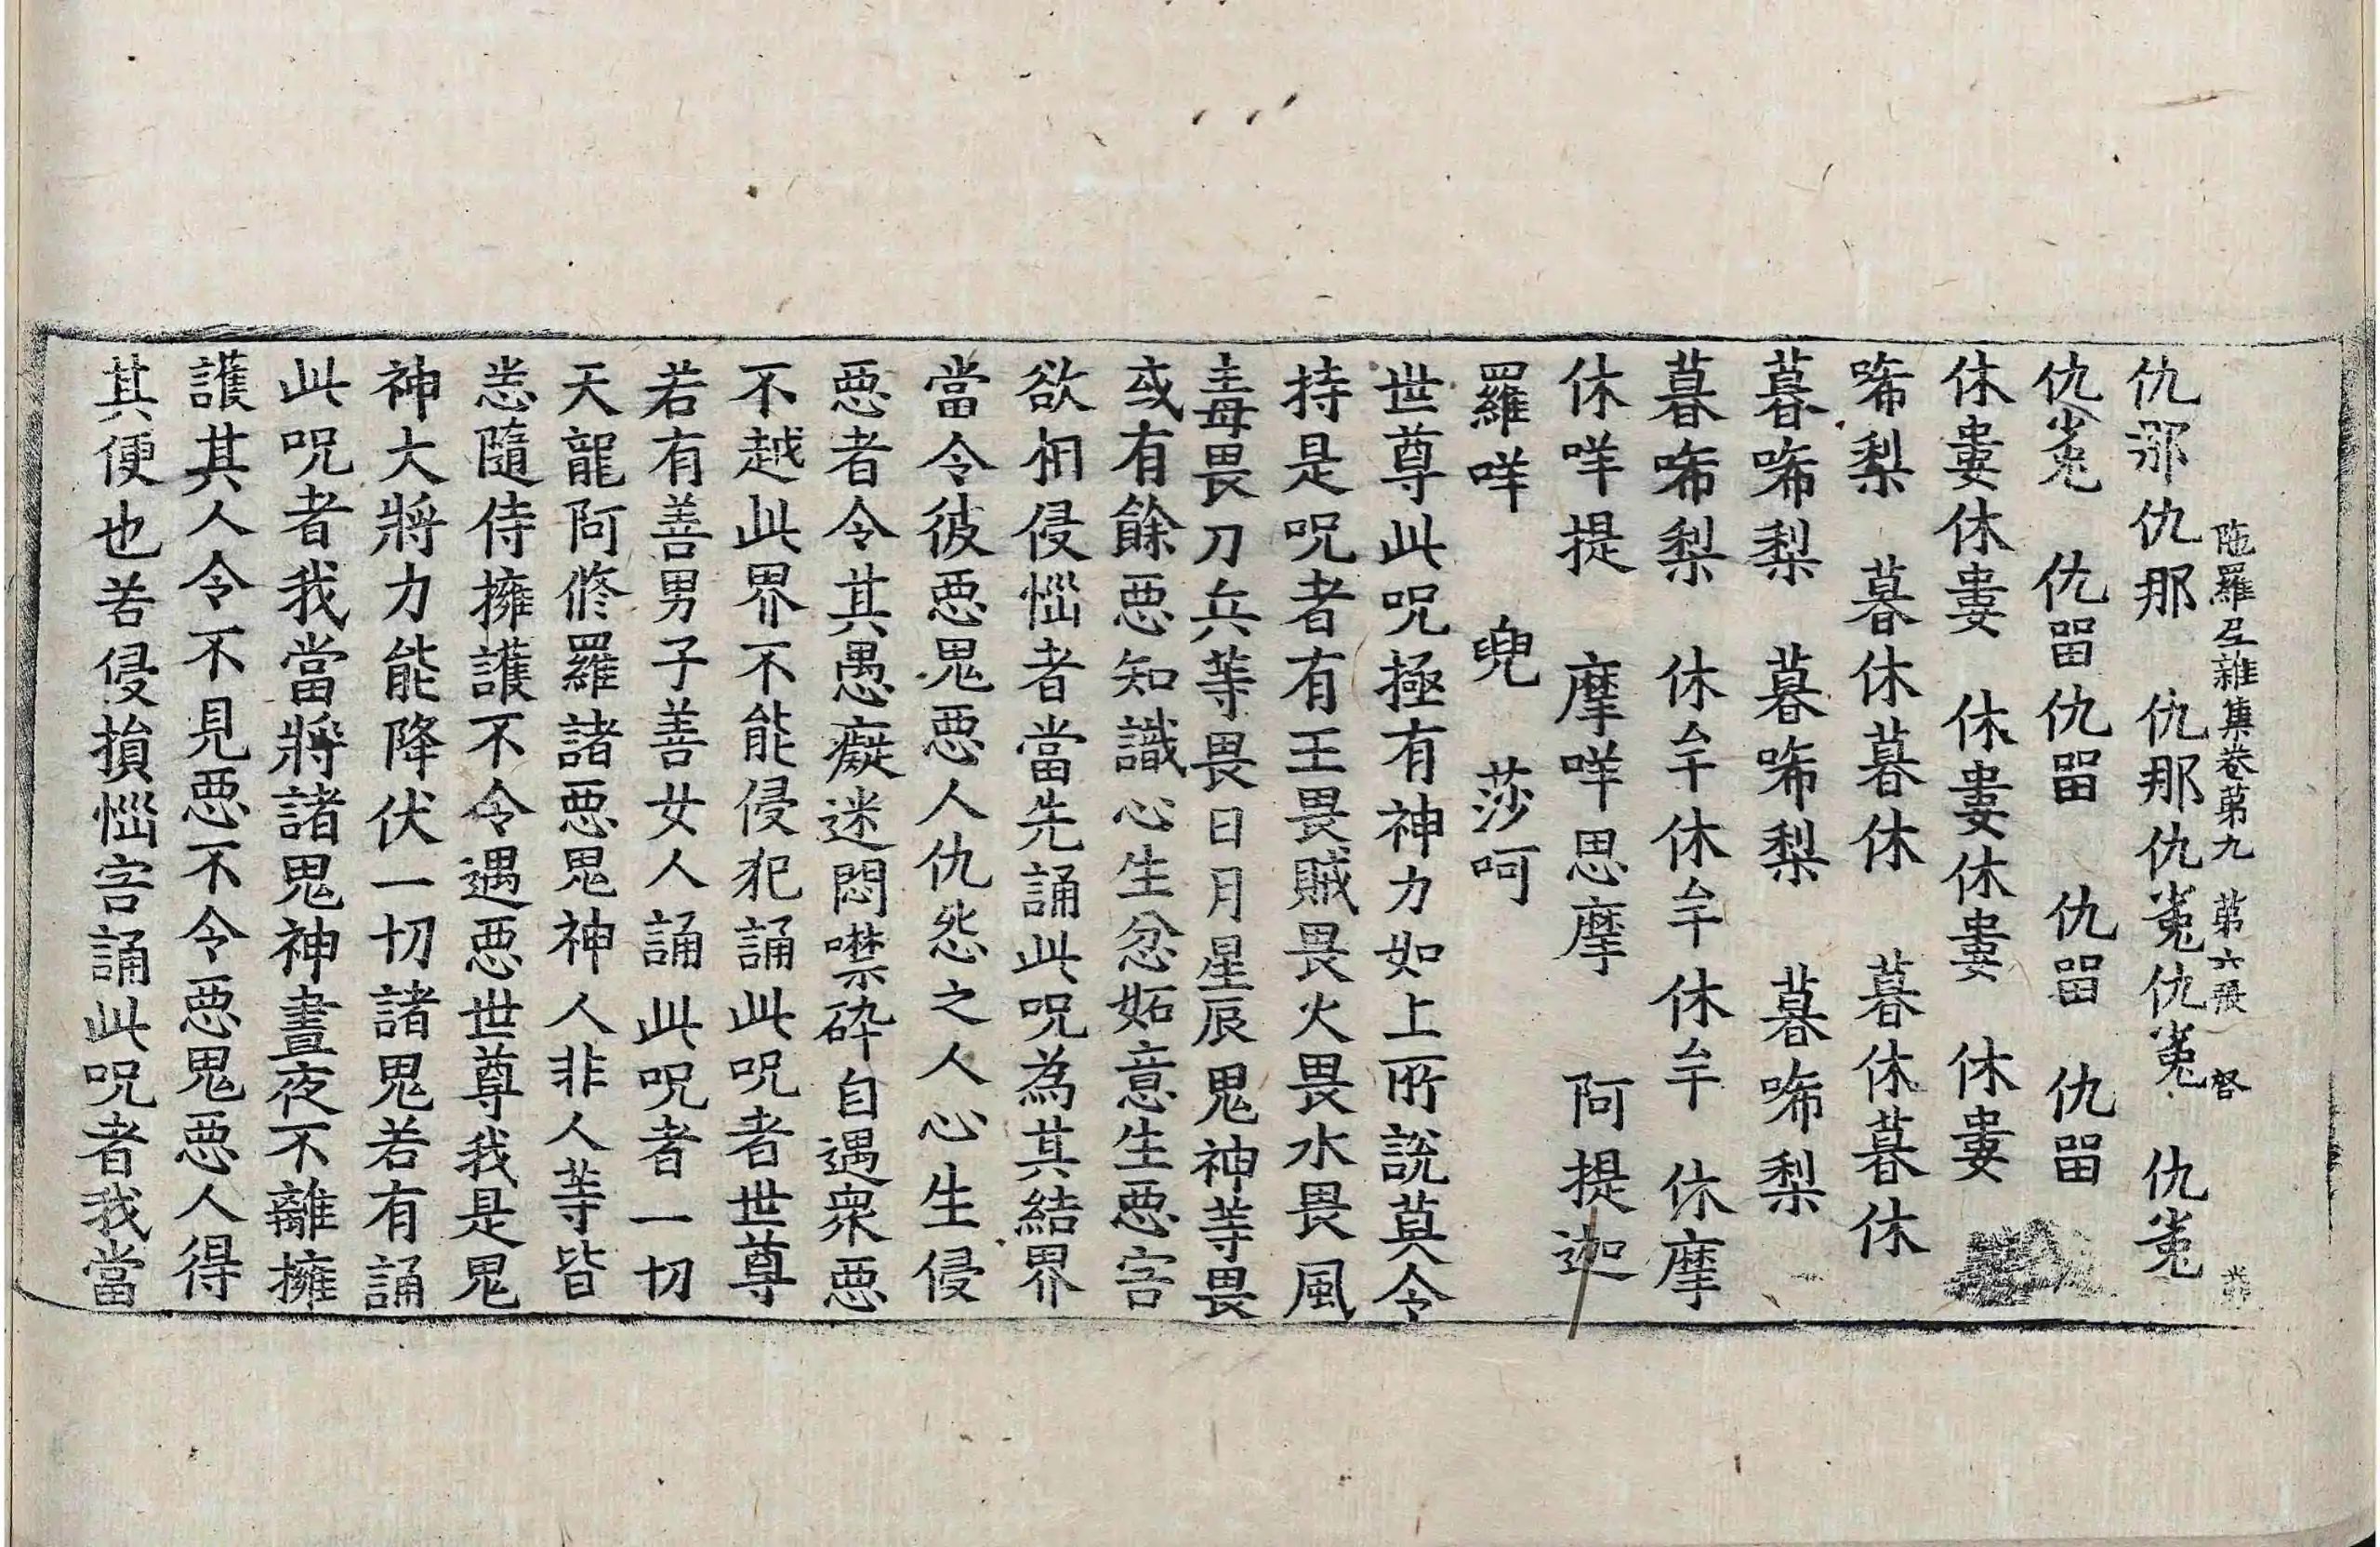 陁羅尼雜集卷第九 第六張 督
仇那仇那 仇那仇㝹仇㝹 仇㝹
仇㝹 仇㽞仇㽞 仇㽞 仇㽞
休婁休婁 休婁休婁 休婁
唏梨 暮休暮休 暮休暮休
暮唏梨 暮唏梨 暮唏梨
暮唏梨 休牟休牟休牟 休摩
休咩提 摩咩思摩 阿提迦
羅咩 兜 莎呵
世尊此呪極有神力如上所說莫令
持是呪者有王畏賊畏火畏水畏風
毒畏刀兵等畏日月星辰鬼神等畏
或有餘惡知識心生忿妬意生惡害
欲相侵惱者當先誦此呪為其結界
當令彼惡鬼惡人仇怨之人心生侵
惡者令其愚癡迷悶噤碎自遇衆惡
不越此界不能侵犯誦此呪者世尊
若有善男子善女人誦此呪者一切
天龍阿修羅諸惡鬼神人非人等皆
恙隨侍擁護不令遇惡世尊我是鬼
神大將力能降伏一切諸鬼若有誦
此呪者我當將諸鬼神晝夜不離擁
護其人令不見惡不令惡鬼惡人得
其便也若侵損惱害誦此呪者我當